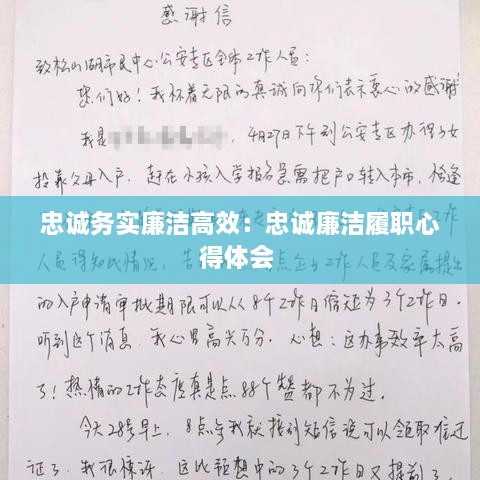 感谢信
致松山湖市民中心公安专区全体工作人员:
您们好!我怀着无限的真诚向你们表示衷心的感谢
我是 4月27日下午到公安专区办理子女
投靠父母入户,赶在小孩入学报名急需把户口转入本市,恰逢
忠诚务实廉洁高效:忠诚廉洁履职心
得体会
人员得知此情况,告 点企业工作人员及家属提出
的入户申请审批期限可以从8个工作日缩短为3个工作日.
听到这个消息,我心里高兴万分.心想:这办事效率太高
了!热情的工作态度真是点88个赞都不为过.
今天28号早上,8点多我就接到短信说可以领取准迁
证了,我很惊讶,这比预想中的3个工作日又提前了